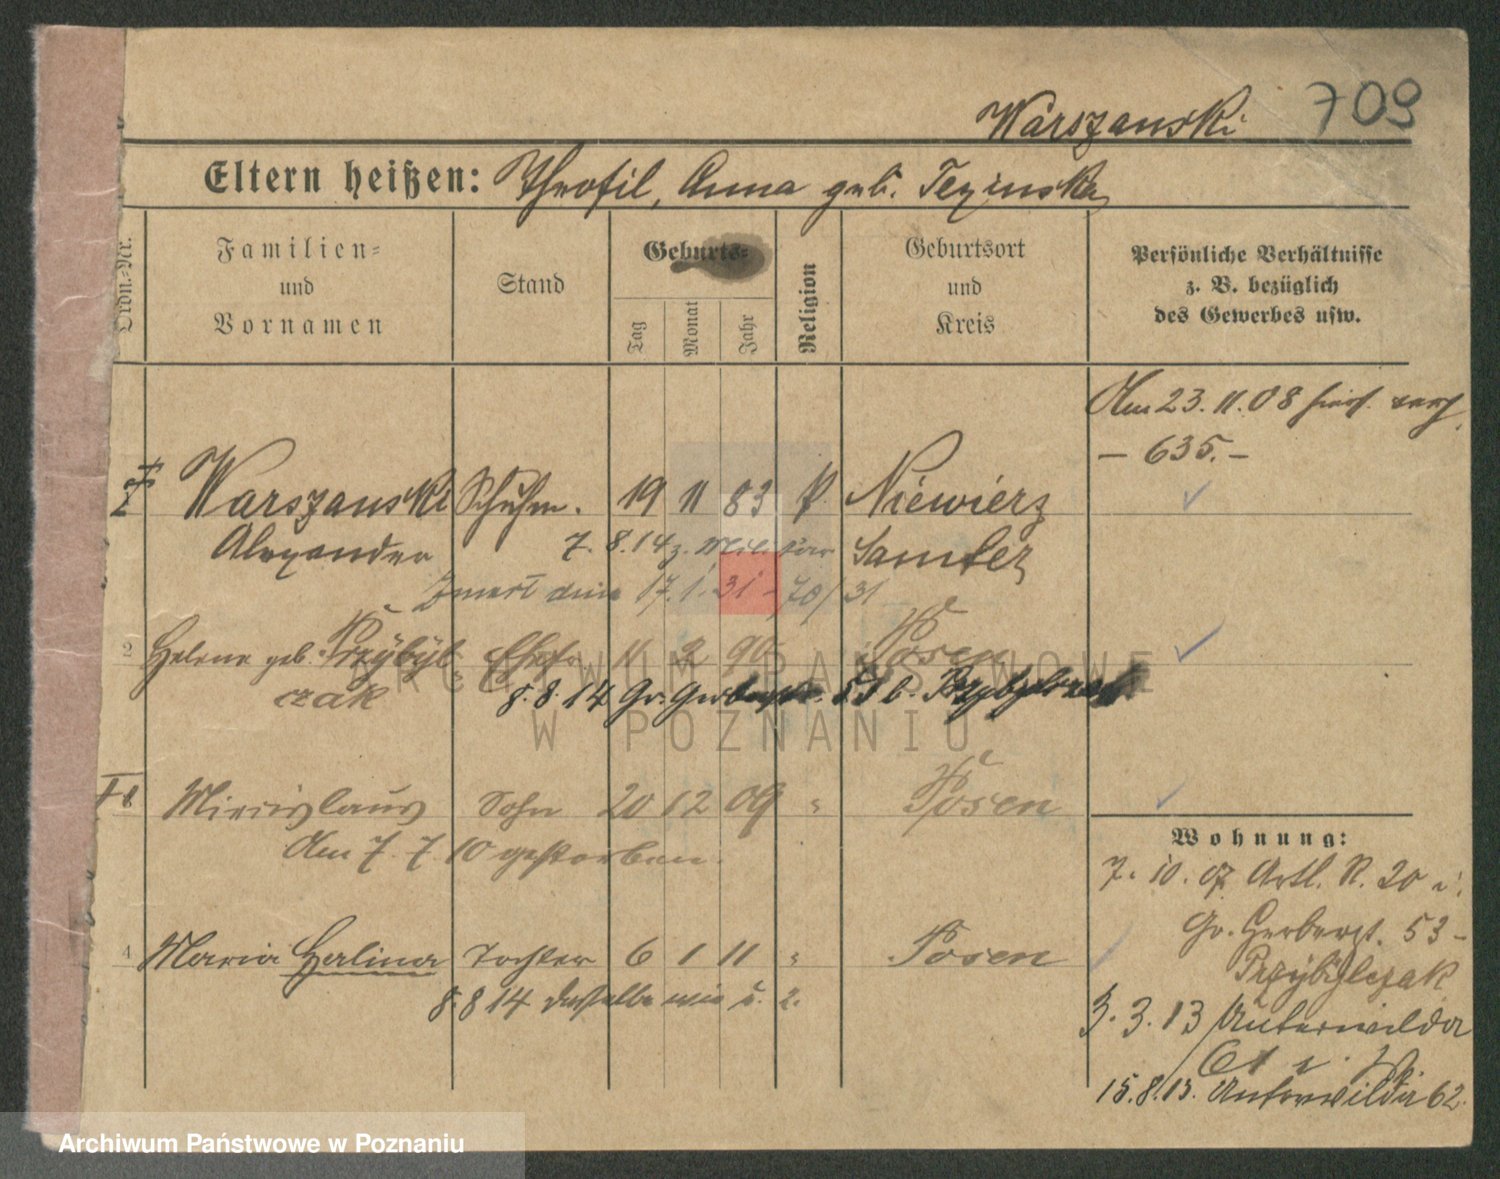 Warszawski 709
Eltern heißen: Theofil, Anna geb. Tezinska
Ordn.-Nr.
Familien- und Vornamen
Stand
Geburts-
Tag
Monat
Jahr
Religion
Geburtsort und Kreis
Persönliche Verhältnisse
z. B. bezüglich
des Gewerbes usw.
Am 23. 11. 08
– 635. –
Warszawski Schuhm. 19 11 83 k Niewierz
Alexander 7. 8. 14 z. Militär Samter
Zmarł dnia 17. 1. 31 - 70/31
2 Helene geb. Przybyl- Ehefr. 11 2 90 Posen
czak 8. 8. 14 Gr. Gerberstr. 53 b. Przybylczak
Miecislaus Sohn 20 12 09 " Posen
Am 7. 7. 10 gestorben.
4 Maria Halina Tochter 6 1 11 " Posen
8. 8 14 dieselbe wie u. 2.
Wohnung:
7. 10. 07 Artl. R. 20
Gr. Gerberst. 53 -
Przybylczak
3. 3. 13 Unterwilda
15. 8. 13. Unterwilda 62.
ARCHIWUM PAŃSTWOWE
W POZNANIU
Archiwum Państwowe w Poznaniu